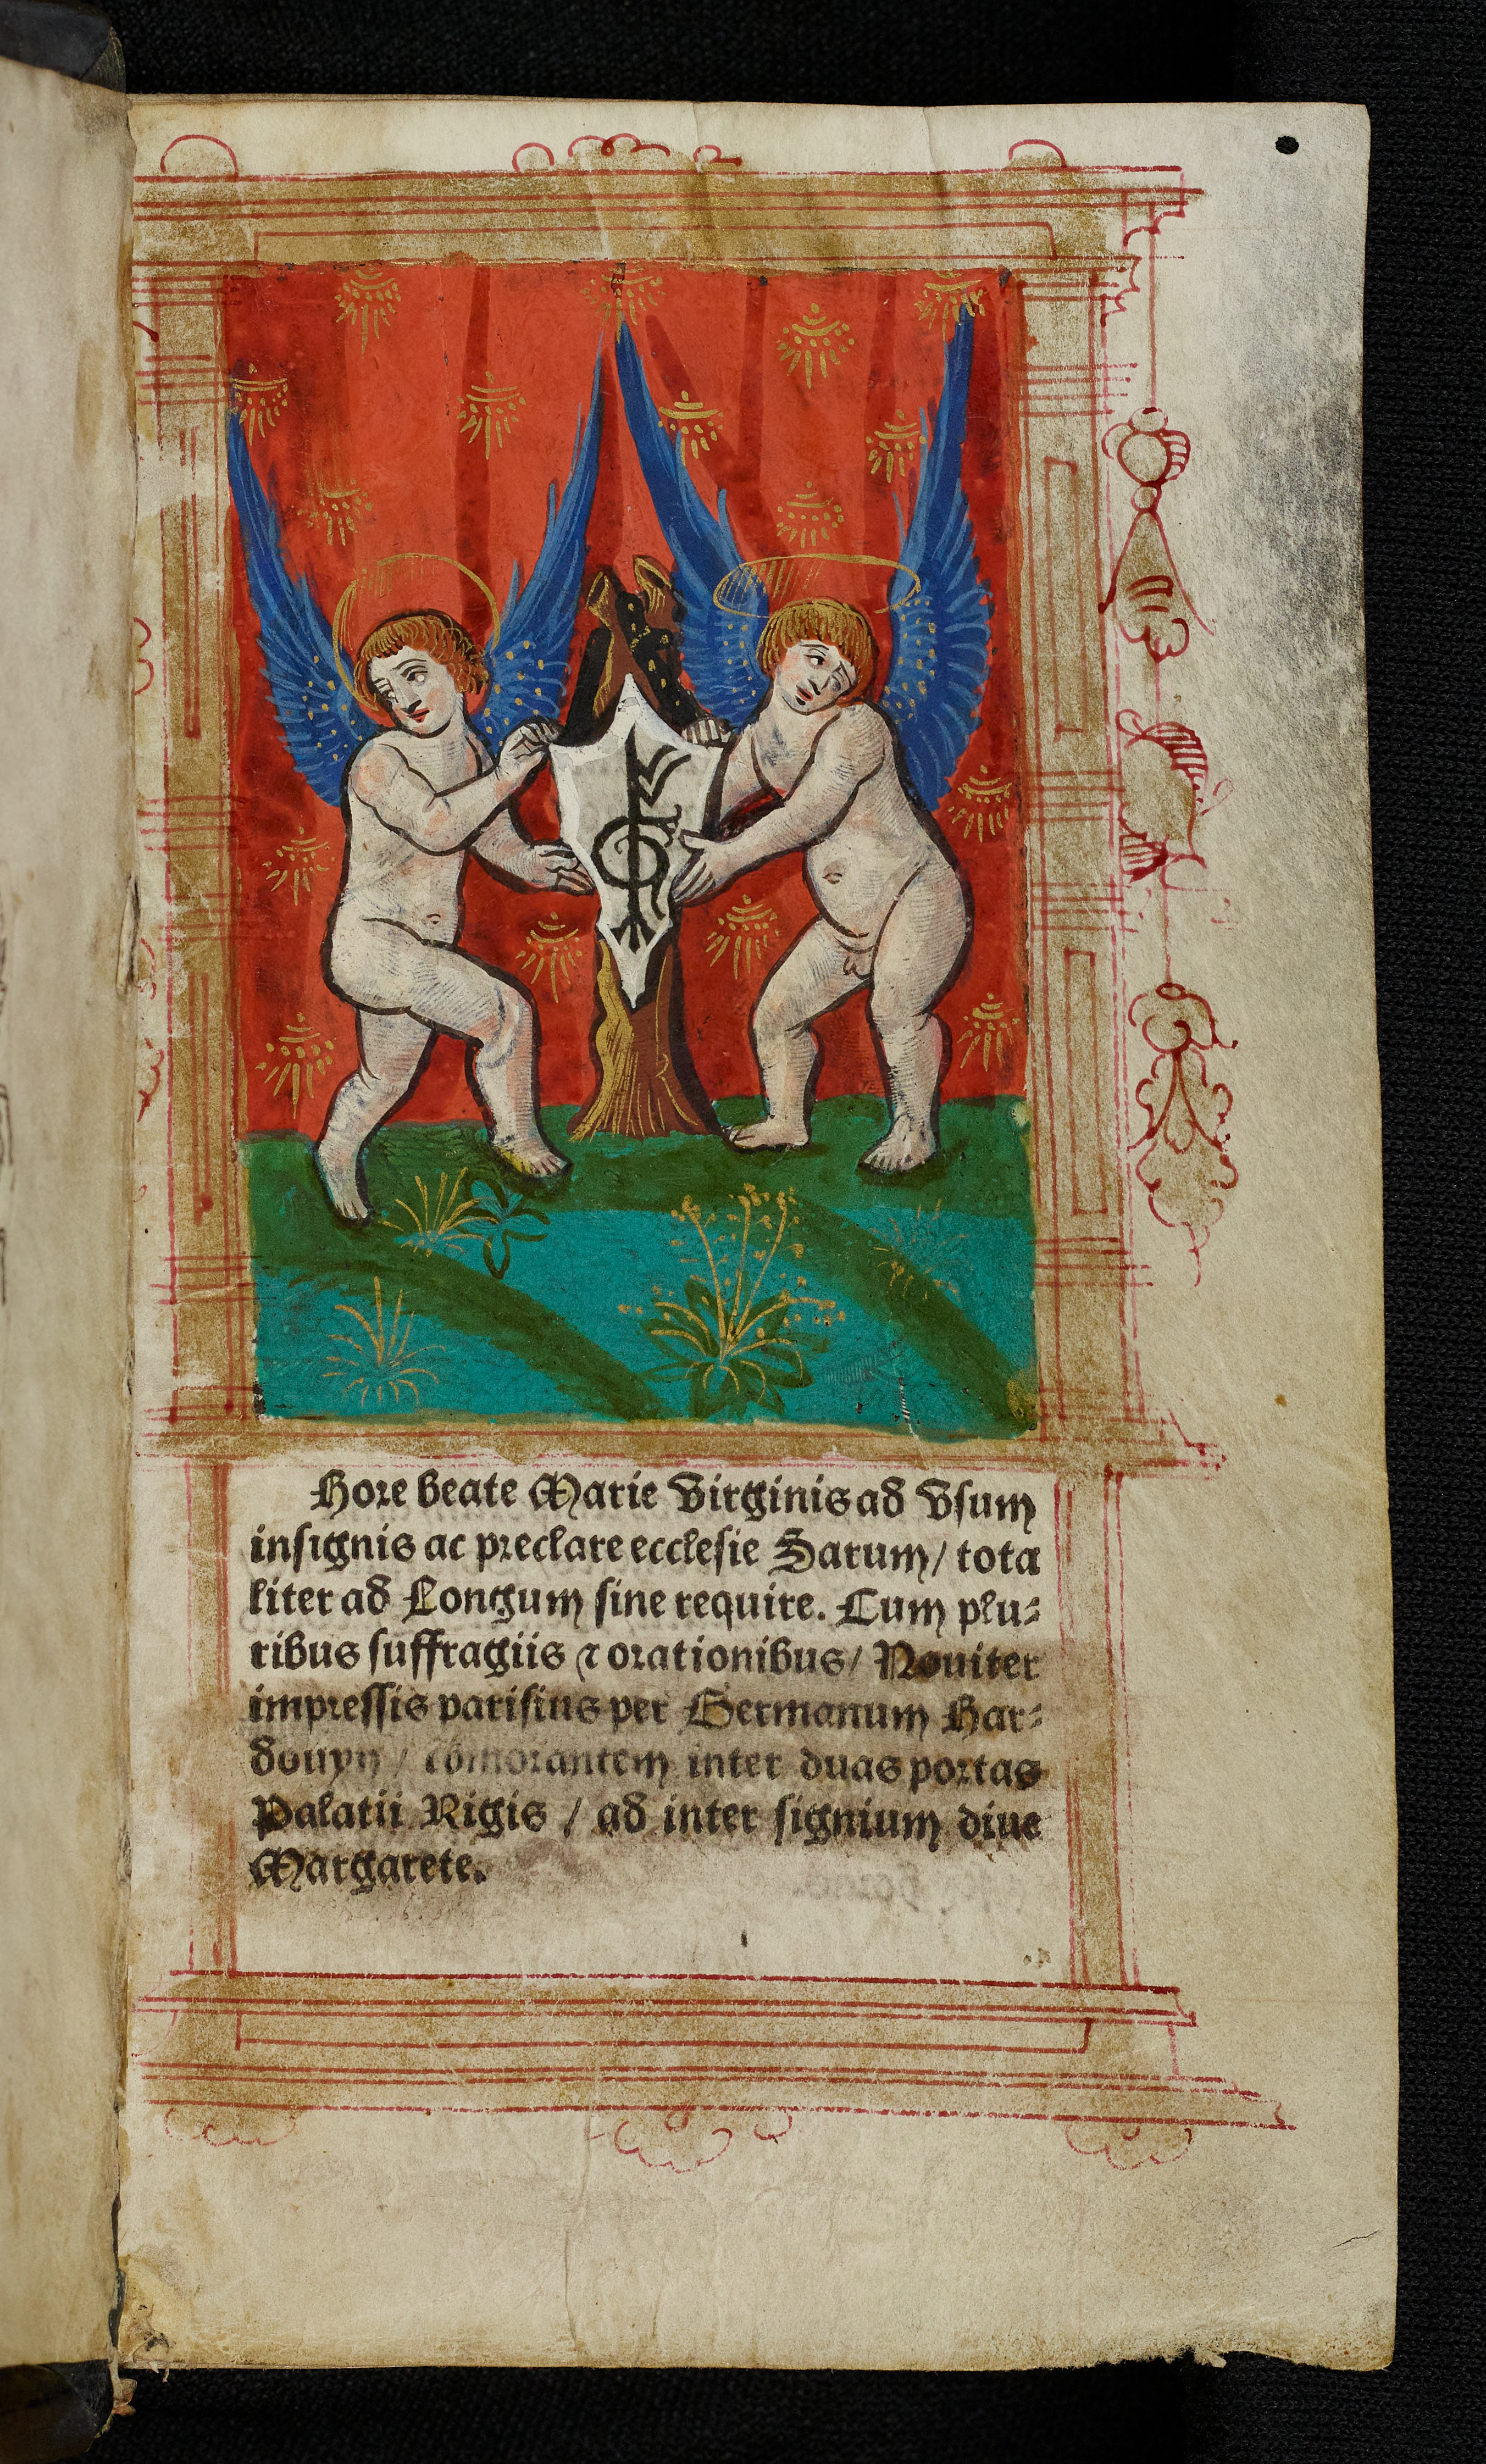 Hore beate Marie Virginis ad Vsum
insignis ac preclare ecclesie Sarum/ tota
liter ad Longum sine require. Cum plu-
ribus suffragiis ⁊ orationibus/ Nouiter
impressis parisius per Germanum Har-
douyn / cõmorantem inter duas portas
Palatii Rigis / ad inter signium diue
Margarete.